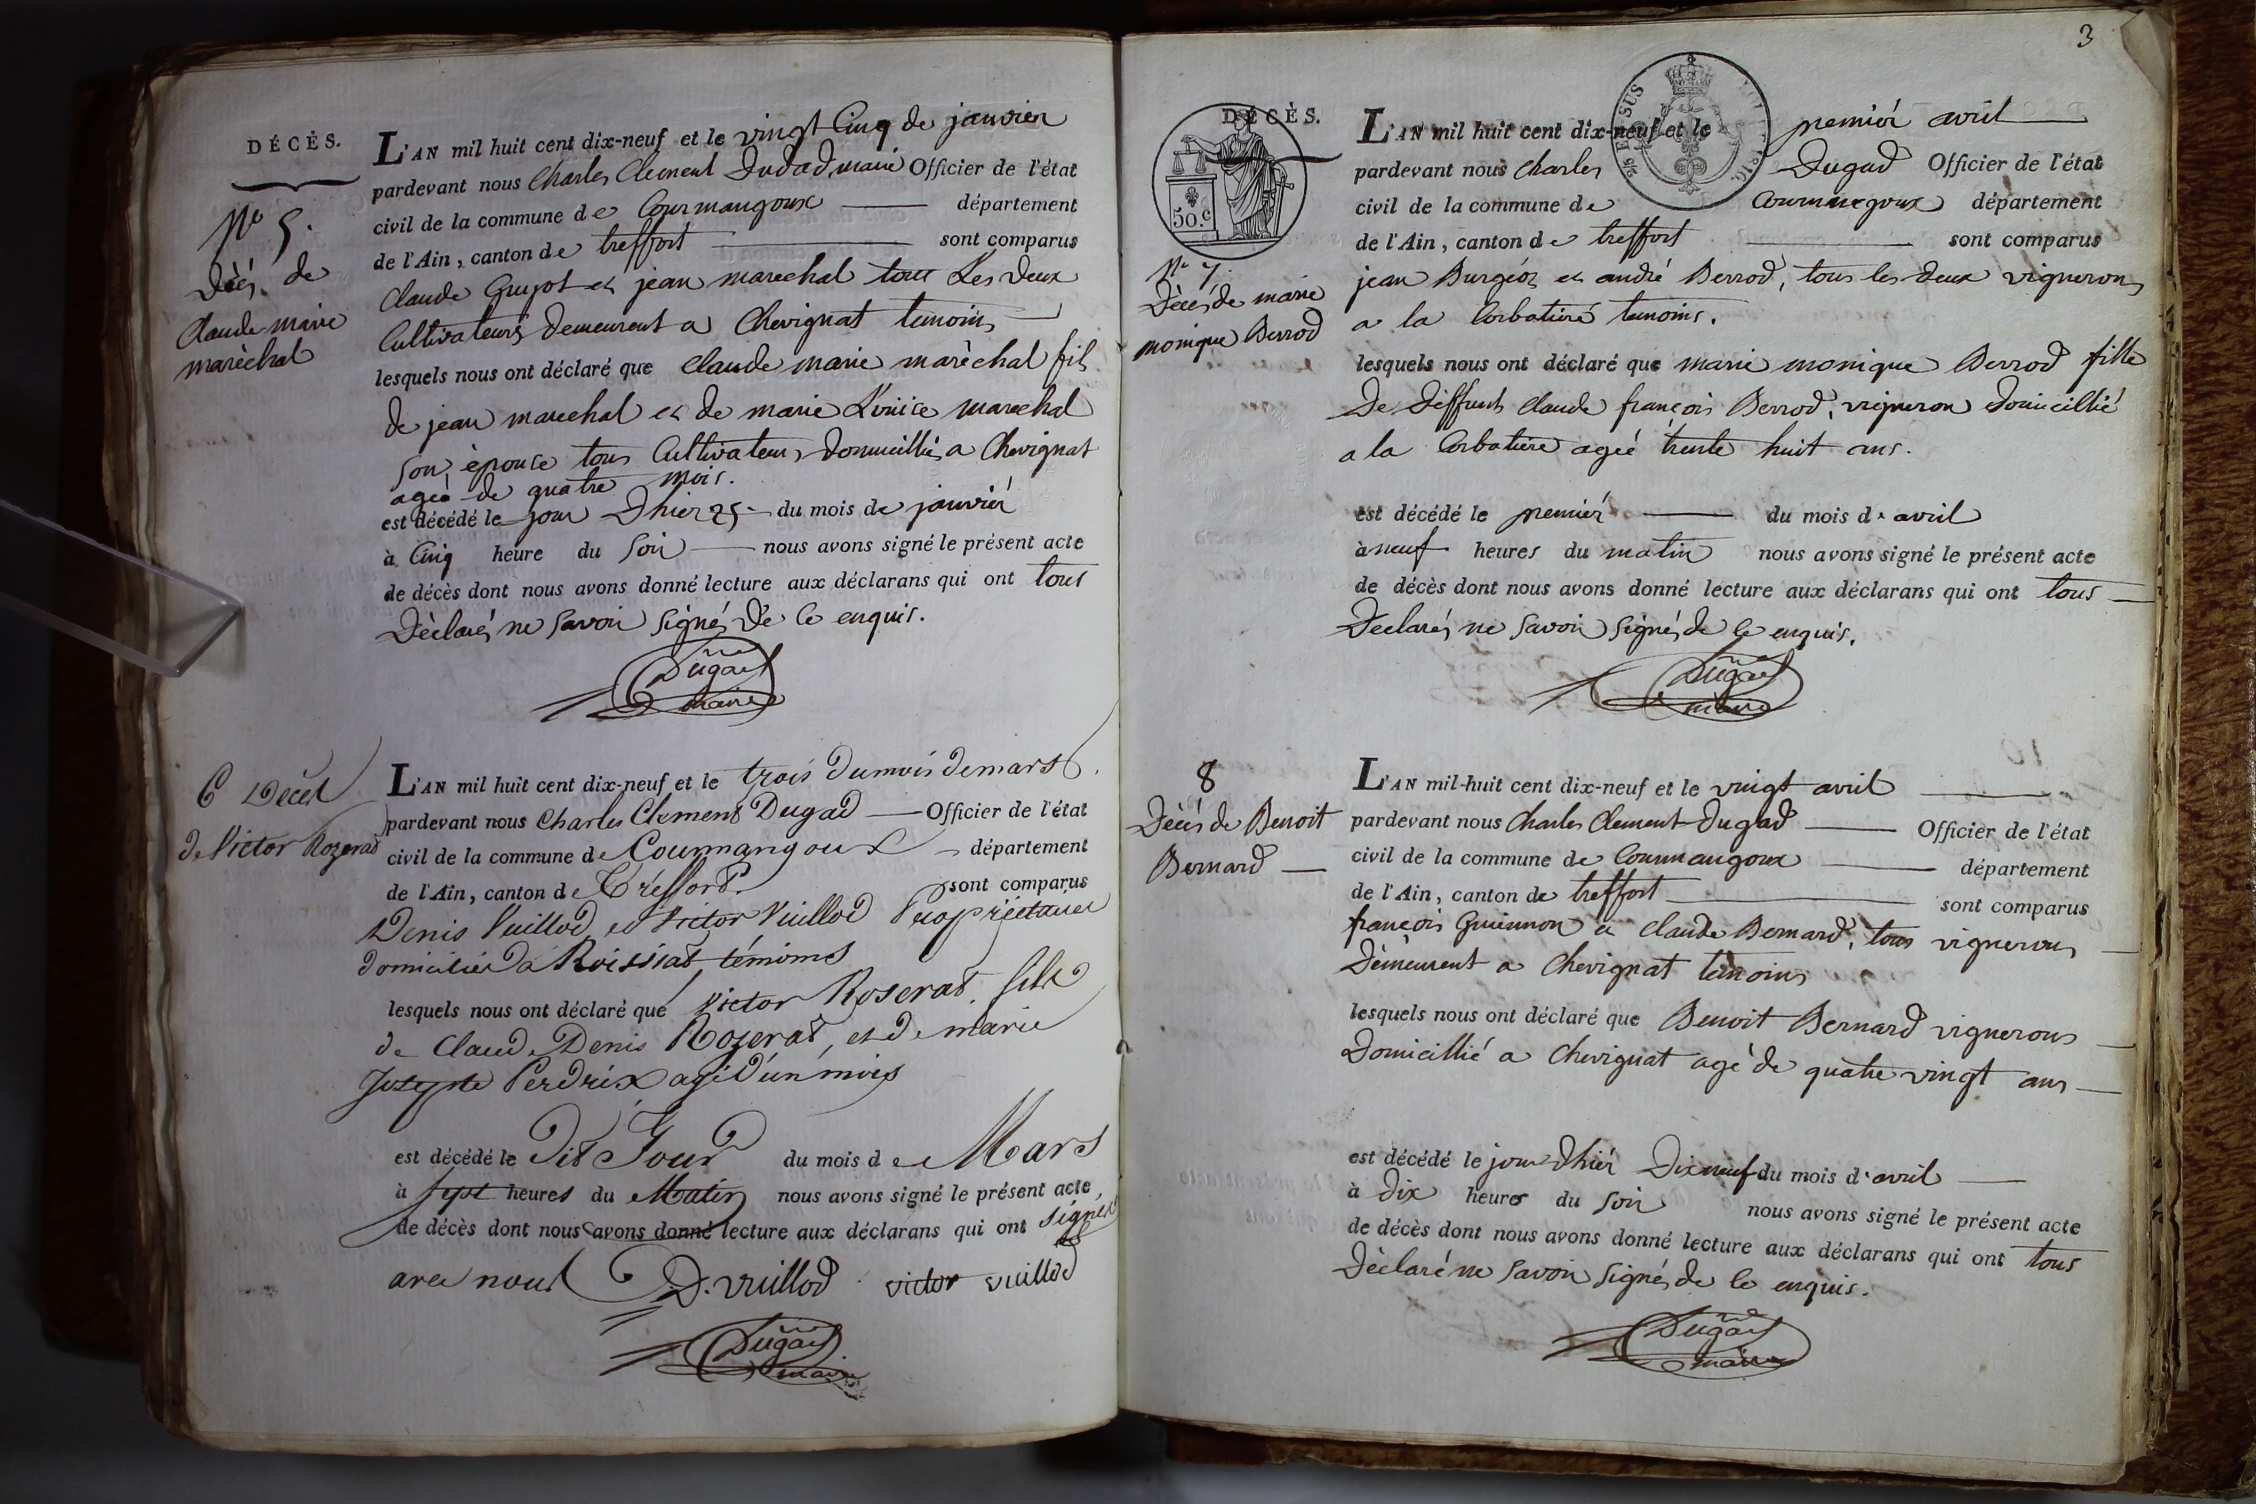 DÉCÈS.
N.º 5.
Décés de
Claude marie
maréchal
L'AN mil huit cent dix-neuf et le vingt Cinq de janvier
pardevant nous Charles Clement Dudad, maire Officier de l'état
civil de la commune de Courmangoux département
de l'Ain, canton de treffort sont comparus
Claude Guyot et jean marechal tous Les deux
Cultivateurs demeurent a Chevignat temoins
lesquels nous ont déclaré que Claude marie maréchal fils
de jean marechal et de marie Louise marechal
son épouse tous Cultivateurs domicilliés a Chevignat
ageé de quatre mois.
est décédé le jour Dhier 25 du mois de janviér
à Cinq heure du soir nous avons signé le présent acte
de décès dont nous avons donné lecture aux déclarans qui ont tous
Déclarés ne savoir signés de ce enquis.
Dugad
maire
6 Décès
de Victor Rozerat
L'AN mil huit cent dix-neuf et le trois du mois de mars
pardevant nous Charles Clement Dugad Officier de l'état
civil de la commune de Courmangoux département
de l'Ain, canton de Tréffort sont comparus
Denis Vuillod et Victor Vuillod Propriétaires
domiciliés à Roissiat, témoins
lesquels nous ont déclaré que Victor Roserat, fils
de Claude Denis Rozerat, et de marie
Josepte Perdrix agé d'un mois
est décédé le Dit Jour du mois de Mars
à sept heures du Matin nous avons signé le présent acte
de décès dont nous avons donné lecture aux déclarans qui ont signés
avec nous D. vuillod victor vuillod
Dugad
maire
3
DÉCÈS.
50.c
N.º 7.
Décès de marie
monique Berrod
L'AN mil huit cent dix-neuf et le premiér avril
pardevant nous Charles Dugad Officier de l'état
civil de la commune de Courmangoux département
de l'Ain, canton de treffort sont comparus
jean Burgéoz et andré Berrod, tous les deux vignerons
a la Corbatiere temoins.
lesquels nous ont déclaré que marie monique Berrod fille
De Deffunt Claude françois Berrod, vigneron domicillié
a la Corbatiere ageé trente huit ans.
est décédé le premiér du mois d'avril
à neuf heures du matin nous avons signé le présent acte
de décès dont nous avons donné lecture aux déclarans qui ont tous
Declarés ne savoir signés de ce enquis.
Dugad
maire
8
Décès de Benoit
Bernard
L'AN mil-huit cent dix-neuf et le vingt avril
pardevant nous Charles Clement Dugad Officier de l'état
civil de la commune de Courmangoux département
de l'Ain, canton de treffort sont comparus
françois Guiennon et Claude Bernard, tous vignerons
Demeurent a Chevignat temoins
lesquels nous ont déclaré que Benoit Bernard vignerons
Domicillié a Chevignat agé de quatre vingt ans
est décédé le jour Dhiér Dix neuf du mois d'avril
à Dix heures du soir nous avons signé le présent acte
de décès dont nous avons donné lecture aux déclarans qui ont tous
Déclaré ne savoir signés de ce enquis.
Dugad
maire